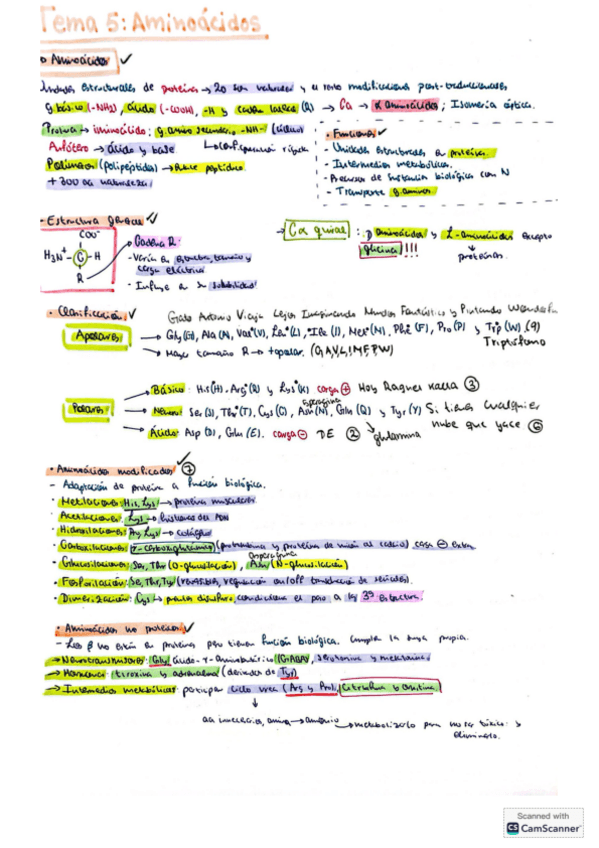 Tema 5: Aminoácidos
Aminoácidos ✓
Unidades estructurales de proteínas → 20 son naturales y el resto modificaciones post-traduccionales
g. básico (-NH2), ácido (-COOH), -H y cadena lateral (R) → Cα → α aminoácidos; Isomería óptica.
Prolina → iminoácido: g. amino secundario -NH- (cíclico)
Anfótero → ácido y base ↳ configuración rígida
Polímeros (polipéptidos) → Enlace peptídico
+ 300 aa naturaleza
· Funciones ✓
- Unidades estructurales de proteínas.
- Intermedios metabólicos.
- Precursor de sustancias biológicas con N
- Transporte g. aminos
- Estructura general ✓
COO-
H3N+ - C - H
R
Cadena R:
- Varía en estructura, tamaño y carga eléctrica
- Influye en su solubilidad
→ Cα quiral : D aminoácidos y L-aminoácidos excepto
glicina!!!
proteínas.
· Clasificación ✓
Gato Antonio Viaja Lejos Imaginando Mundos Fantásticos y Pintando
Apolares → Gly (G), Ala (A), Val (V), Leu (L), Ile (I), Met (M), Phe (F), Pro (P) y Trp (W) (9)
→ Mayor tamaño R → + apolar. (G, A, V, L, I, M, F, P, W) Triptófano
Básico: His (H), Arg (R) y Lys (K) carga + Hoy Raquel (3)
Polares → Neutro: Ser (S), Thr (T), Cys (C), Asn (N), Gln (Q) y Tyr (Y) Si tienes cualquier
Asparagina
nube que yace (6)
Ácido: Asp (D), Glu (E). carga - DE (2) glutamina
· Aminoácidos modificados (7) ✓
- Adaptación de proteína a función biológica.
· Metilaciones: His, Lys → proteína musculares
· Acetilaciones: Lys → histonas del ADN
· Hidroxilaciones: Pro, Lys → colágeno
· Carboxilaciones: γ-carboxiglutámico (protrombina y proteínas de unión al calcio) carga - extra
Asparagina
· Glucosilaciones: Ser, Thr (O-glucosilación), Asn (N-glucosilación)
· Fosforilación: Ser, Thr, Tyr (reversibles, regulación on/off transducción de señales).
· Dimerización: Cys → puentes disulfuro, el paso a la 3ª estructura.
· Aminoácidos no proteicos ✓
- Los β no están en proteínas pero tienen función biológica. Cumplen la suya propia.
→ Neurotransmisores: Gly, ácido-γ-aminobutírico (GABA), serotonina y melatonina
→ Hormonas: tiroxina y adrenalina (derivados de Tyr)
→ Intermedios metabólicos: participan ciclo urea (Arg y Pro), Citrulina y ornitina
aa innecesarios, amina → amonio → metabolizarlo para no ser tóxico y
eliminarlo.
Scanned with
CS CamScanner